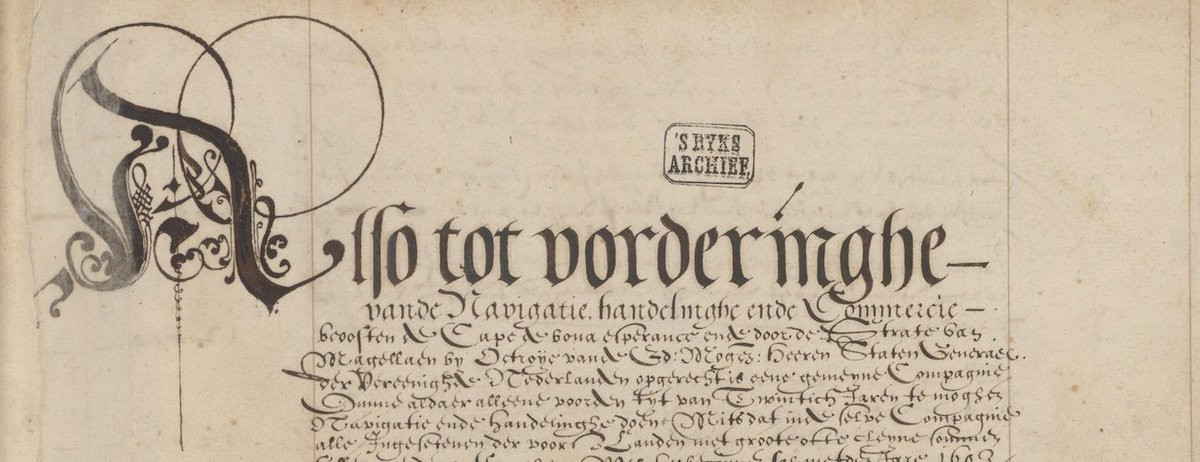 'S RYKS
ARCHIEF.
Also tot vorderinghe
vande Navigatie, handelinghe ende Commercie
beoosten de Cape de bona esperance ende door de Strate van
Magellaen by Octroye vande Ed: Mogen: Heeren Staten Generael
der Vereenighde Nederlanden opgerecht is eene gemeyne Compagnie
omme aldaer alleene voorden tyt van Twintich Jaren te moghen
Navigatie ende Handelinghe doen: Mits dat inde selve Compagnie
alle Ingesetenen der voors Landen met groote ofte cleyne sommen